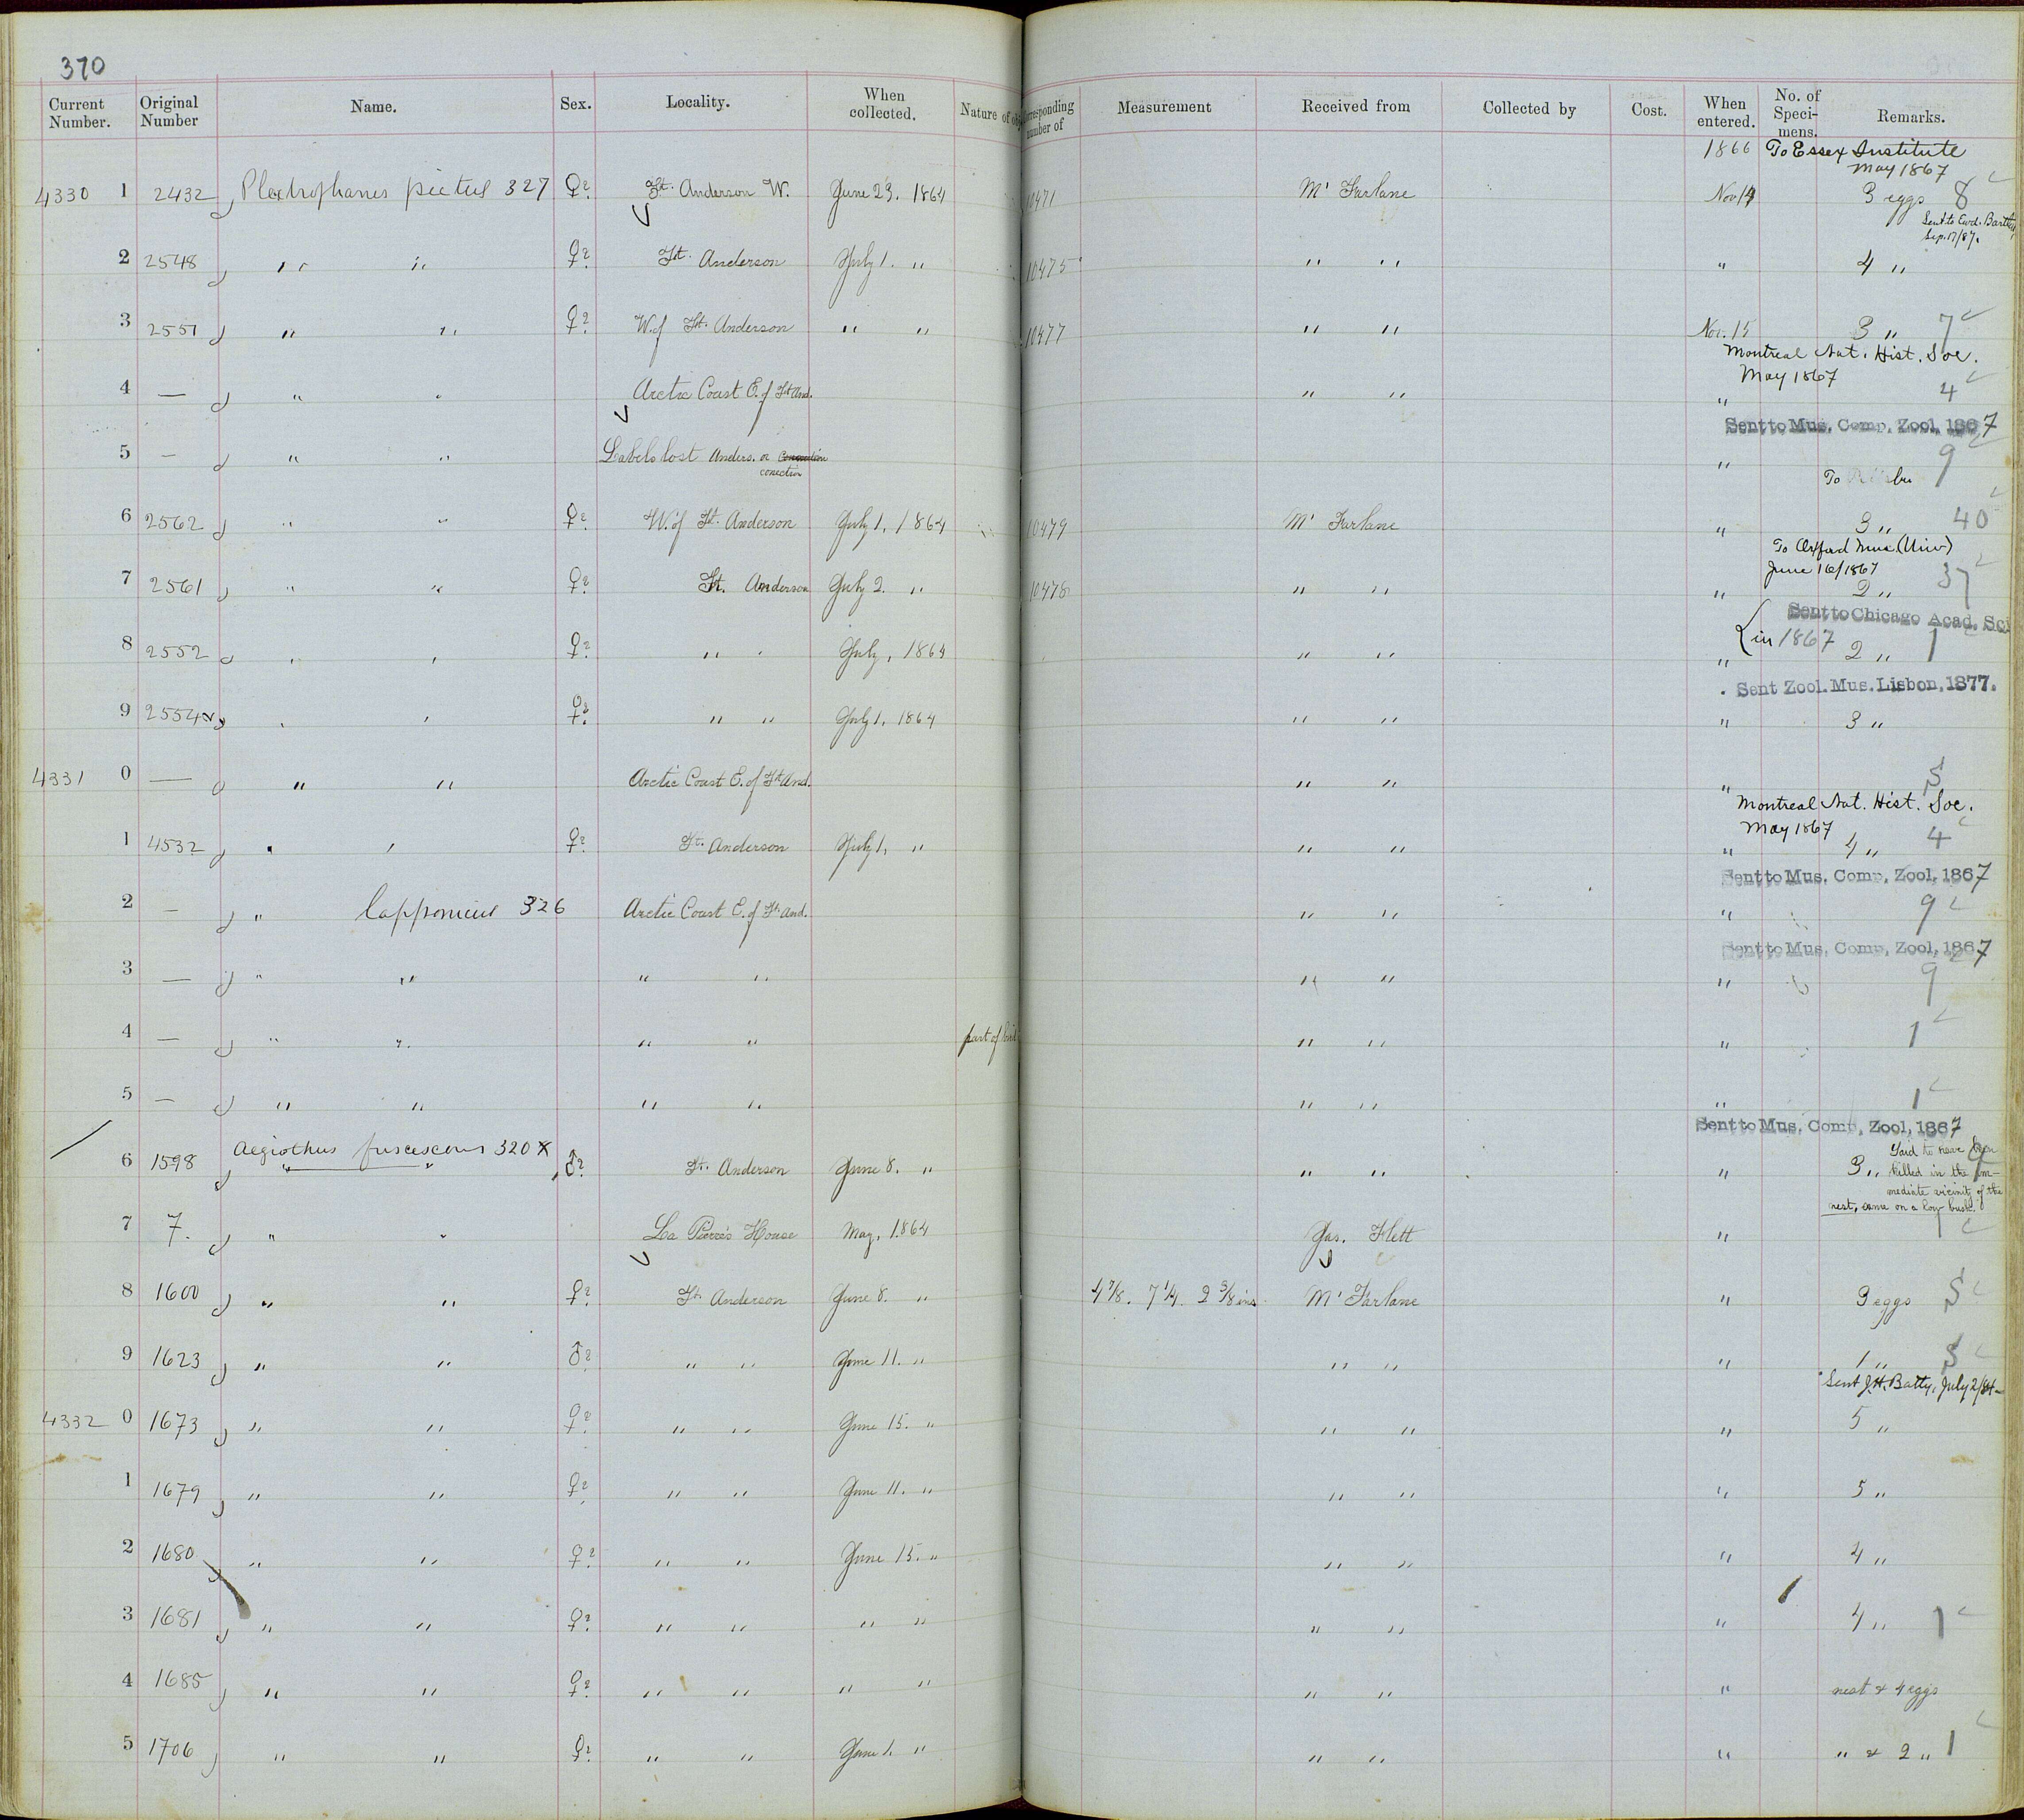 370
Current Number. Original Number Name. Sex. Locality. When collected. Nature of Corresponding number of Measurement Received from Collected by Cost. When entered. No. of Speci-mens. Remarks.
1866 To Essex Institute
May 1867
4330 1 2432 Plectrophanes pictus 327 ♀? Ft. Anderson W. June 23. 1864 10471 Mc Farlane Nov 14 3 eggs 8
Sent to Ewd. Bartlett,
Sep. 17/87.
2 2548 " " ♀? Ft. Anderson July 1. " 10475 " " " 4 "
3 2551 " " ♀? W. of Ft. Anderson " " 10477 " " Nov. 15 3 " 7
Montreal Nat. Hist. Soc.
May 1867
4 — " " Arctic Coast E. of Ft And. " " " 4
Sent to Mus. Comp. Zool. 1867
5 — " " Labels lost Anders. or
" 9
To
6 2562 " " ♀? W. of Ft. Anderson July 1, 1864 10479 Mc Farlane " 3 " 40
To Oxford Mus (Univ)
June 16/1867
7 2561 " " ♀? Ft. Anderson July 2. " 10478 " " " 2 " 37
Sent to Chicago Acad. Sci
in 1867
8 2552 " " ♀? " " July, 1864 " " " 2 " 1
Sent Zool. Mus. Lisbon, 1877.
9 2554 " " ♀? " " July 1, 1864 " " " 3 "
4331 0 — " " Arctic Coast E. of Ft And. " " " 5
Montreal Nat. Hist. Soc.
May 1867
1 4532 " " ♀? Ft. Anderson July 1, " " " " 4 " 4
Sent to Mus. Comp. Zool, 1867
2 — " lapponicus 326 Arctic Coast E. of Ft. And. " " " 9
Sent to Mus. Comp. Zool, 1867
3 — " " " " " " " 9
4 — " " " " part of " " " 1
5 — " " " " " " " 1
Sent to Mus. Comp. Zool, 1867
Aegiothus fuscescens 320 x
6 1598 " " ♂? Ft. Anderson June 8. " " " " 3 " 9
Said to have been
killed in the im-
mediate vicinity of the
nest, on a low bush.
7 7. " " La Pierre's House May, 1864 Jas. Flett " 1
8 1600 " " ♀? Ft. Anderson June 8. " 4 7/8. 7 1/4. 2 3/8 ins Mc Farlane " 3 eggs 5
9 1623 " " ♂? " " June 11. " " " " 1 " 5
Sent J.H. Batty, July 2/84
4332 0 1673 " " ♀? " " June 15. " " " " 5 "
1 1679 " " ♀? " " June 11. " " " " 5 "
2 1680 " " ♀? " " June 15. " " " " 4 "
3 1681 " " ♀? " " " " " " " 4 " 1
4 1685 " " ♀? " " " " " " " nest & 4 eggs
5 1706 " " ♀? " " June 1. " " " " " & 2 " 1